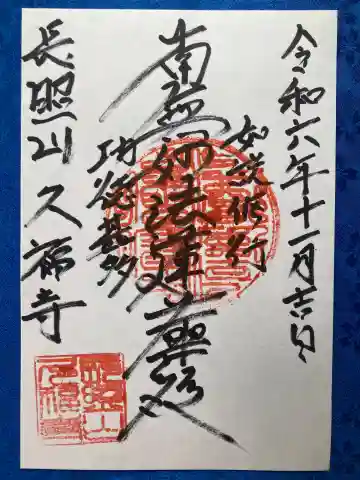 令和六年十一月吉日
如説修行
南無妙法蓮華経
功徳甚多
長照山久福寺